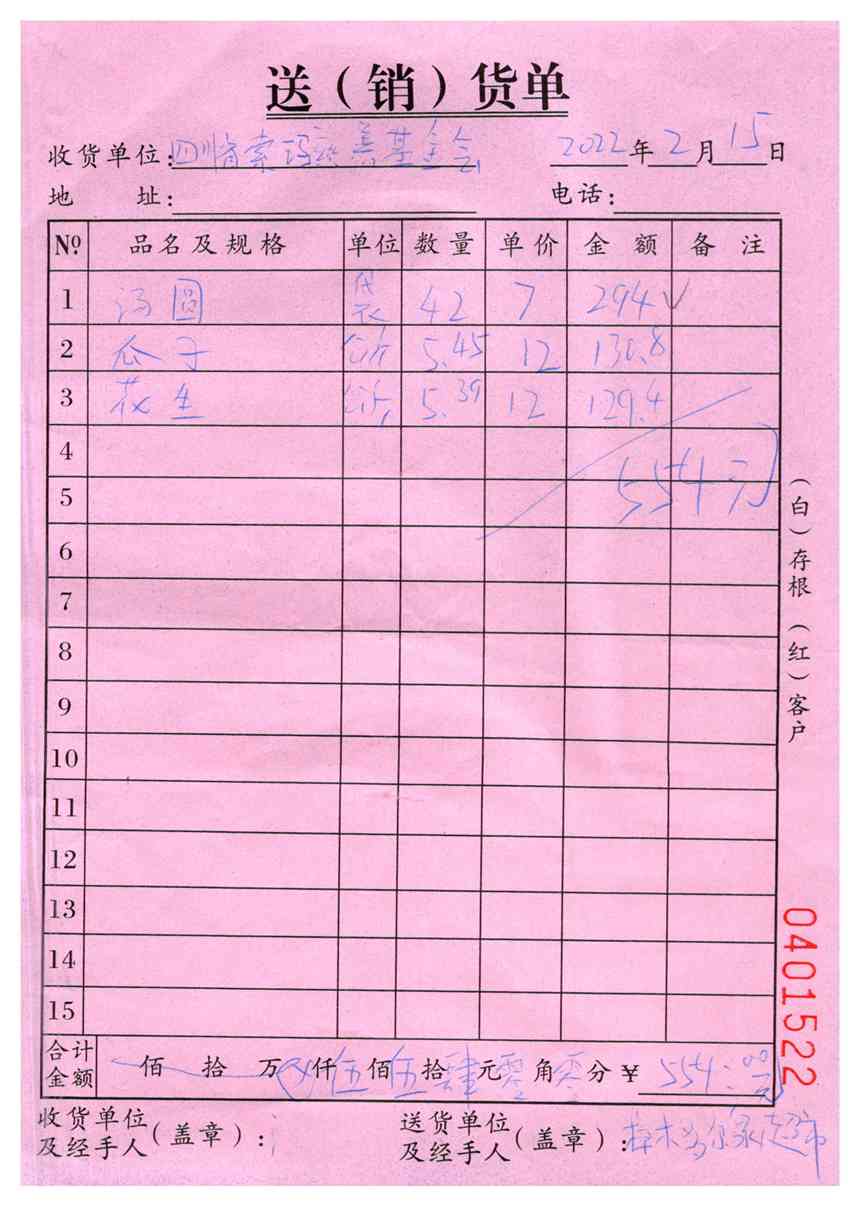 送（销）货单
收货单位：四川省索玛慈善基金会 2022年2月15日
地 址： 电话：
№ 品名及规格 单位 数量 单价 金 额 备 注
1 汤圆 袋 42 7 294 √
2 瓜子 公斤 5.45 12 130.8
3 花生 公斤 5.39 12 129.4
4
554元
5
6
7
8
9
10
11
12
13
14
15
合计金额 佰 拾 万 仟伍佰伍拾肆元零角零分￥554.00元
收货单位及经手人（盖章）： 送货单位及经手人（盖章）：
（白）存根 （红）客户
0401522